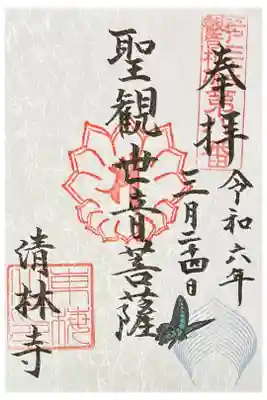 奉拝
令和六年
三月二十四日
聖観世音菩薩
清林寺